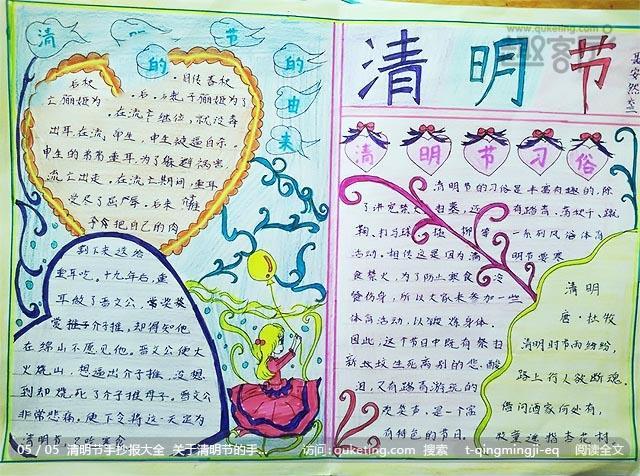 清明节的由来
出耳在流
申生的弟弟重耳,为了躲避祸害,
流亡出走。在流亡期间,重耳
受尽了屈辱。
割下来送给
重耳吃。十九年后,重
耳做了晋文公,
介子推,却得知他
在绵山不愿见他。晋文公便大
火烧山,想逼出介子推,没想
到却烧死了介子推母子。晋文公
非常悲痛。便下令将这一天定为
清明节
清明节
清明节习俗
清明节的习俗是丰富有趣的,除
了讲究禁火
活动。相传这是因为清明节要寒
食禁火,为了防止寒食冷
餐伤身,所以大家来参加一些
体育活动,以锻炼身体。
因此,这个节日中既有祭扫
新坟生死离别的悲酸
泪,又有踏青游玩的
欢笑声,是一个富
有特色的节日。
清明
唐·杜牧
清明时节雨纷纷,
路上行人欲断魂。
借问酒家何处有,
牧童遥指杏花村。
www.quketing.com
05 / 05 清明节手抄报大全 关于清明节的手... 访问:quketing.com 搜索 t-qingmingji-eq 阅读全文